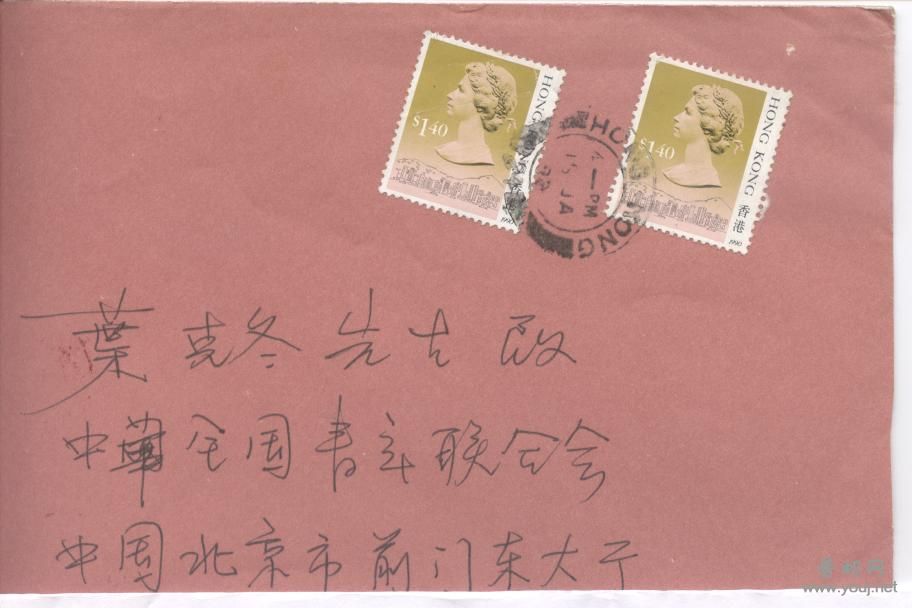 $1.40
HONG KONG 香港
1990
HONG KONG
4-PM
15 JA
92
$1.40
HONG KONG 香港
1990
葉克冬先生啟
中華全国青年联合会
中国北京市前门东大厅
www.youj.net